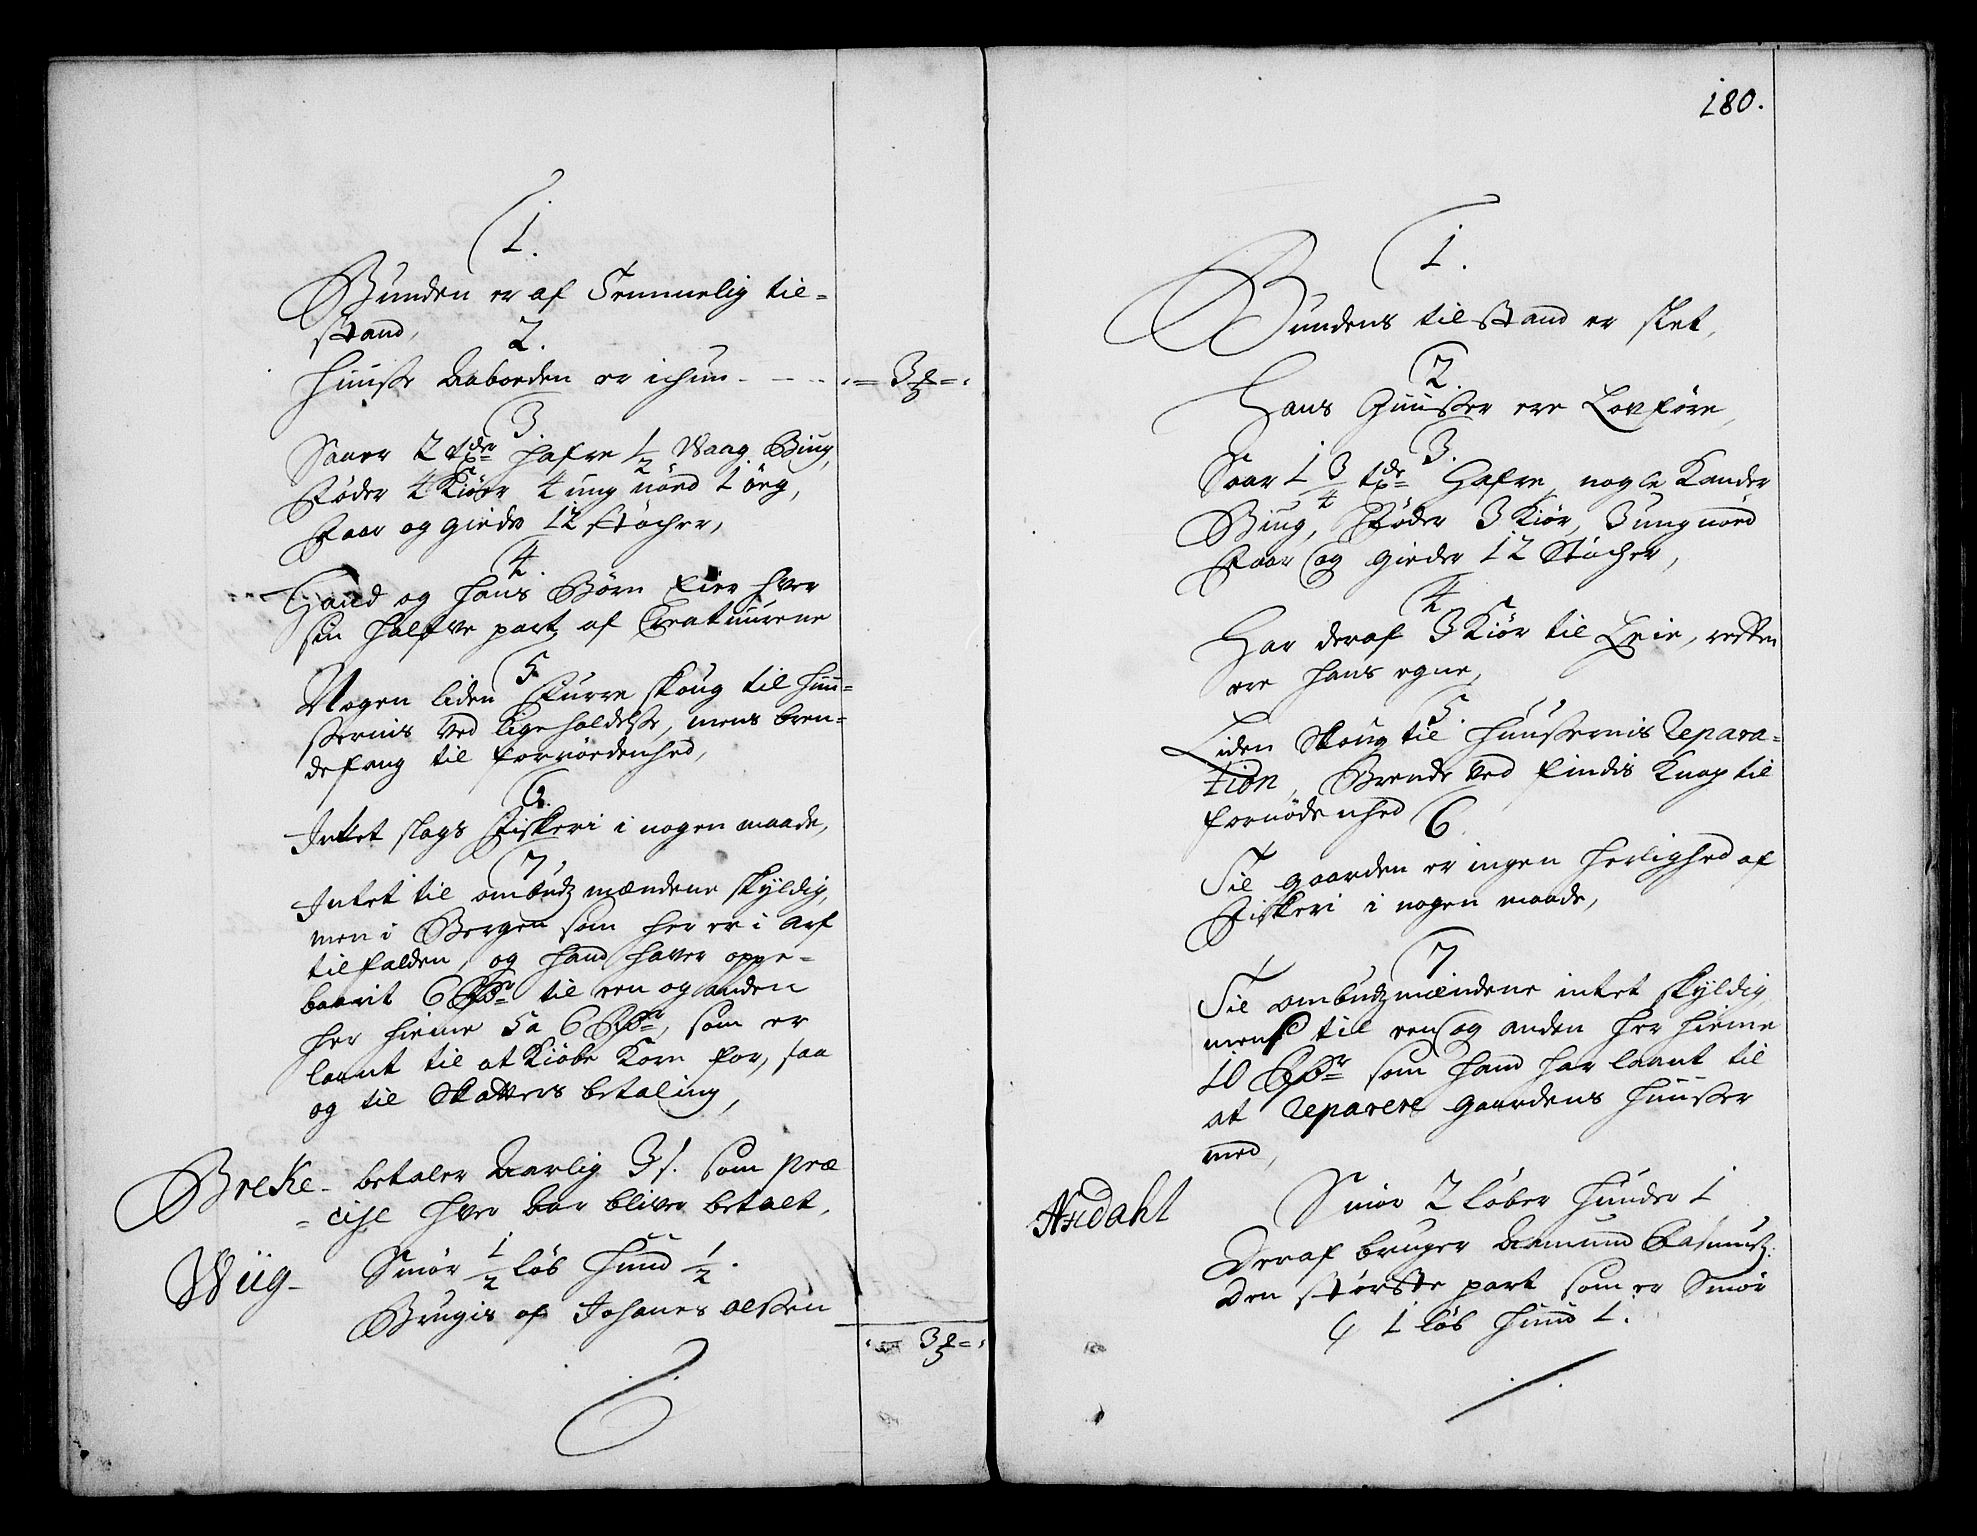 1.
Bunden er af Temmelig til=
stand,
2.
Huusse Aaboeden er ichun - - - 3 f
3.
Saaer 2 tdr Hafre 1/2 Waag Biug,
Føder 4 Kiøer 4 ung nöed 1 öeg,
Faar og gieder 12 støcher,
4.
Hand og hans Børn Eier hver
sin halfve part af Creatuurene
5
Nogen liden Furre skoug til Huu=
ssernis ved lige holdelsse, mens bren=
defang til fornöedenhed,
6.
Intet slags Fiskeri i nogen maade,
7
Intet til ombudz mændene skyldig,
men i Bergen som her er i Arf
tilfalden, og hand haver oppe=
baarit 6 Rdr til een og anden
her hieme 5 a 6 Rdr, som er
laant til at Kiöbe Korn for, saa
og til Skatters betaling,
Breke - betaler Aarlig 3 f. som præ
= cise hver Aar bliver betalt,
Wiig - Smör 1/2 löb Huud 1/2.
Brugis af Johanes Olssen
3 f
180.
1.
Bundens tilstand er slet,
2.
Hans Huusser ere Lovføre,
3.
Saar 1 3/4 tdr Hafre, nogle Kander
Biug, Føder 3 Kiör, 3 ung nöed
Faar og gieder 12 Støcher,
4
Har deraf 3 Kiör til Leie, resten
ere hans egne,
5.
Liden Skoug til Huussernis Repara=
tion, Brende ved findis Knap til
fornödenhed
6
Til gaarden er ingen herlighed af
Fiskeri i nogen maade,
7
Til ombudzmændene intet skyldig
mens til een og anden her hieme
10 Rdr som hand har laant til
at Reparere gaardens Huusser
med,
Audahl Smör 2 löber Huuder 1
Deraf bruger Aamund Rasmusz:
Den störste part som er Smör
1 löb Huud 1.